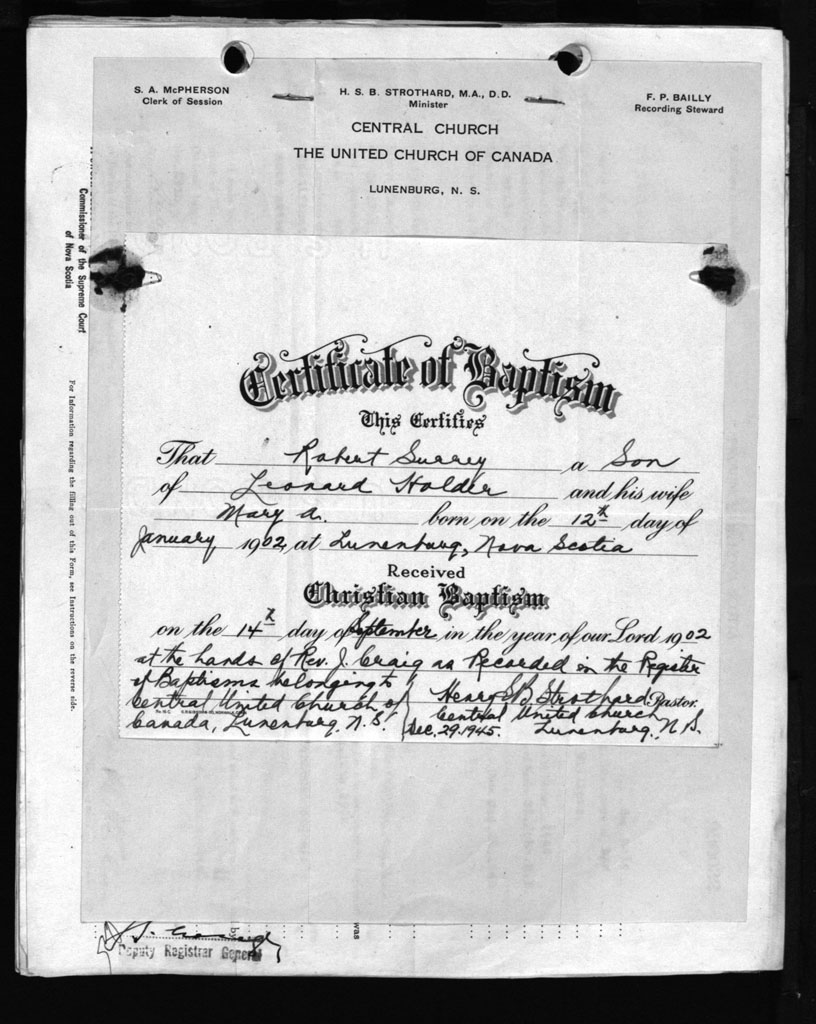 S. A. McPHERSON
Clerk of Session
H. S. B. STROTHARD, M.A., D.D.
Minister
F. P. BAILLY
Recording Steward
CENTRAL CHURCH
THE UNITED CHURCH OF CANADA
LUNENBURG, N. S.
Commissioner of the Supreme Court
of Nova Scotia
For Information regarding the filling out of this Form, see Instructions on the reverse side.
Certificate of Baptism
This Certifies
That Robert Surrey a Son
of Leonard Holder and his wife
Mary A. born on the 12th day of
January 1902, at Lunenburg, Nova Scotia
Received
Christian Baptism
on the 14th day of September in the year of our Lord 1902
at the hands of Rev. J. Craig as Recorded on the Register
of Baptisms belonging to
Central United Church of
Canada, Lunenburg, N.S.
Henry S B Strothard Pastor.
Central United Church
Dec. 29. 1945. Lunenburg, N.S.
by
was
Deputy Registrar General